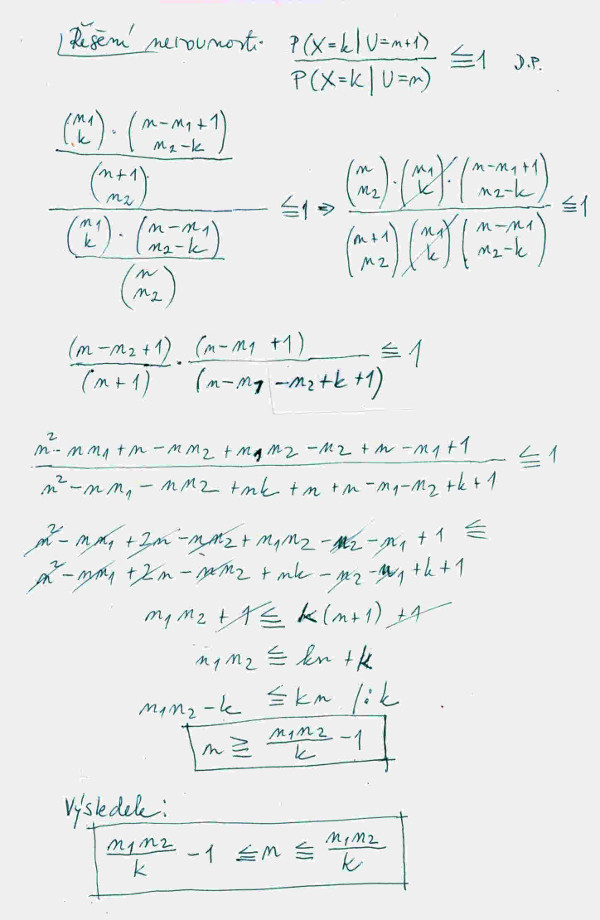 Řešení nerovnosti. P(X=k|U=n+1) / P(X=k|U=n) ≦ 1 D.P.
(n₁ k)·(n-n₁+1 n₂-k) / (n+1 n₂) / (n₁ k)·(n-n₁ n₂-k) / (n n₂) ≦ 1 ⇒ (n n₂)·(n₁ k)·(n-n₁+1 n₂-k) / (n+1 n₂)(n₁ k)(n-n₁ n₂-k) ≦ 1
(n-n₂+1)/(n+1) · (n-n₁+1)/(n-n₁-n₂+k+1) ≦ 1
n²-nn₁+n-nn₂+n₁n₂-n₂+n-n₁+1 / n²-nn₁-nn₂+nk+n+n-n₁-n₂+k+1 ≦ 1
n²-nn₁+2n-nn₂+n₁n₂-n₂-n₁+1 ≦
n²-nn₁+2n-nn₂+nk-n₂-n₁+k+1
n₁n₂+1 ≦ k(n+1)+1
n₁n₂ ≦ kn+k
n₁n₂-k ≦ kn /:k
n ≧ n₁n₂/k - 1
Výsledek:
n₁n₂/k - 1 ≦ n ≦ n₁n₂/k